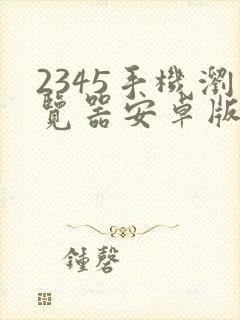 2345手機瀏
覽器安卓版
鍾磬